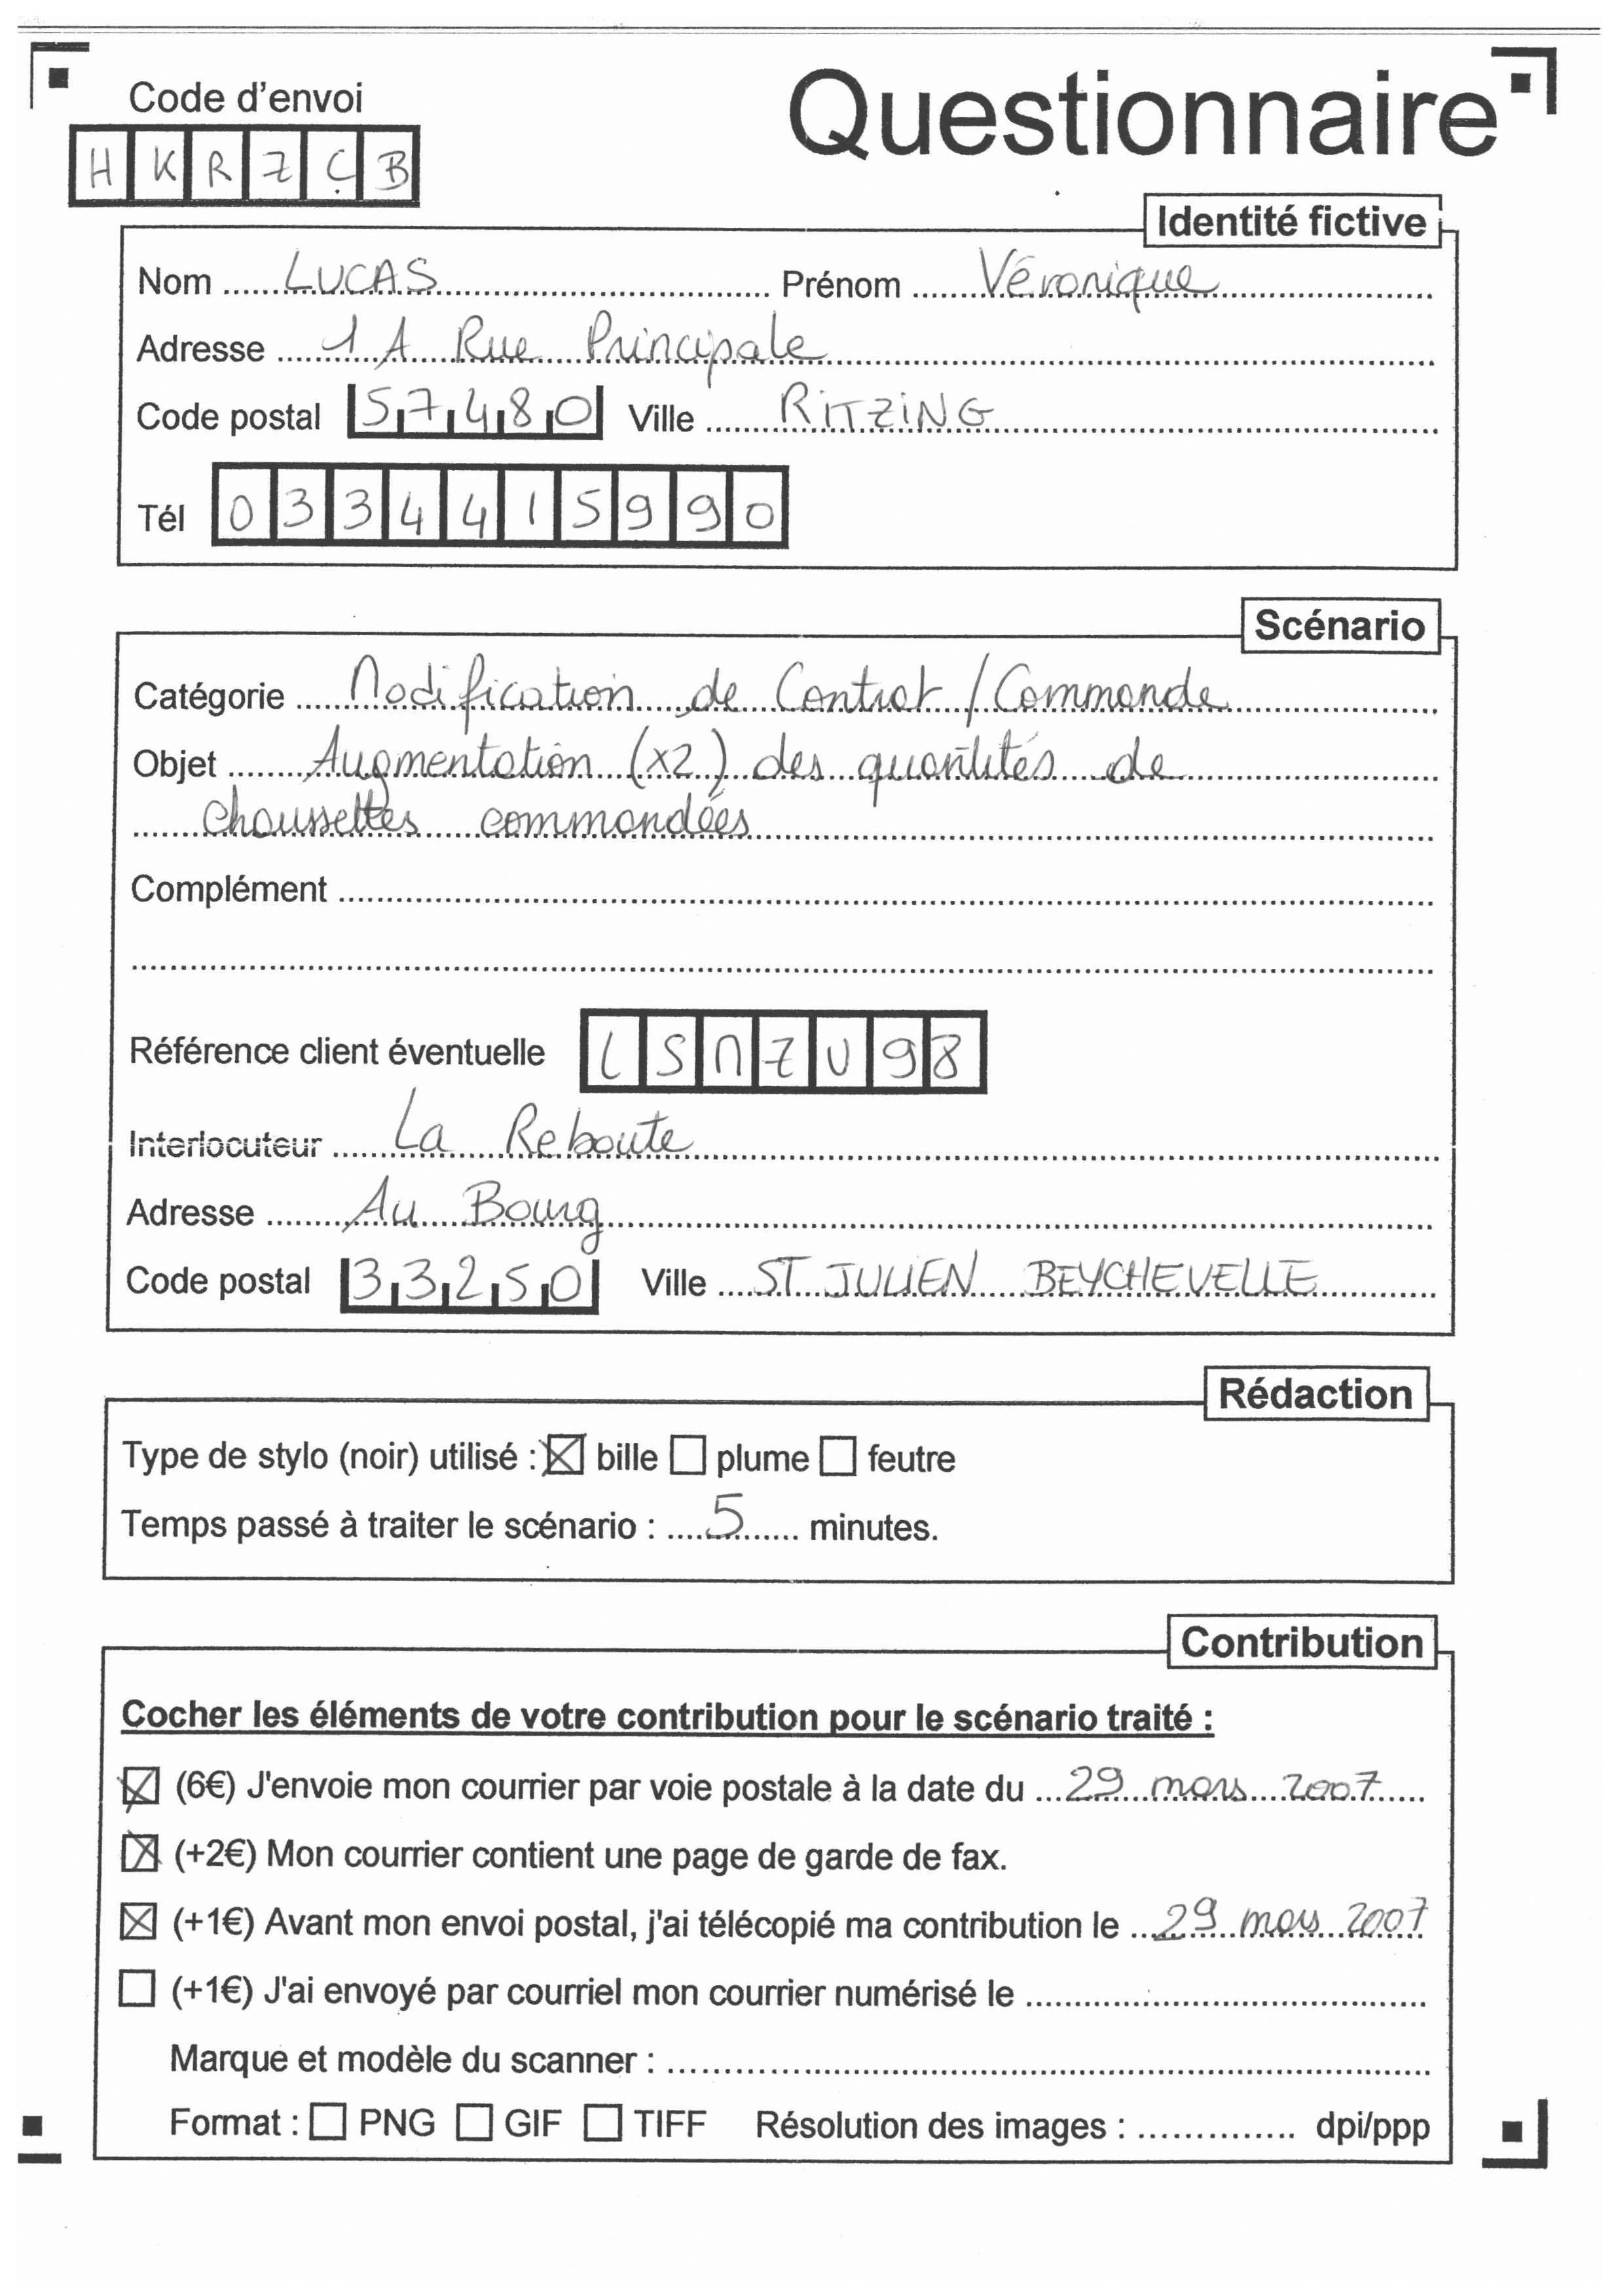 Code d'envoi
Questionnaire
H K R 7 Ç B
Identité fictive
Nom ...... LUCAS ...... Prénom ...... Véronique ......
Adresse ...... 1 A Rue Principale ......
Code postal 57480 Ville ...... RITZING ......
Tél 0 3 3 4 4 1 5 9 9 0
Scénario
Catégorie ...... Modification de Contrat / Commande ......
Objet ...... Augmentation (x2) des quantités de ......
...... chaussettes commandées ......
Complément ......
Référence client éventuelle L S N Z U 9 8
Interlocuteur ...... La Reboute ......
Adresse ...... Au Bourg ......
Code postal 33250 Ville ...... ST JULIEN BEYCHEVELLE ......
Rédaction
Type de stylo (noir) utilisé : ☒ bille ☐ plume ☐ feutre
Temps passé à traiter le scénario : .... 5 ...... minutes.
Contribution
Cocher les éléments de votre contribution pour le scénario traité :
☒ (6€) J'envoie mon courrier par voie postale à la date du ... 29 mars 2007 ......
☒ (+2€) Mon courrier contient une page de garde de fax.
☒ (+1€) Avant mon envoi postal, j'ai télécopié ma contribution le ... 29 mars 2007
☐ (+1€) J'ai envoyé par courriel mon courrier numérisé le ......
Marque et modèle du scanner : ......
Format : ☐ PNG ☐ GIF ☐ TIFF Résolution des images : ...... dpi/ppp